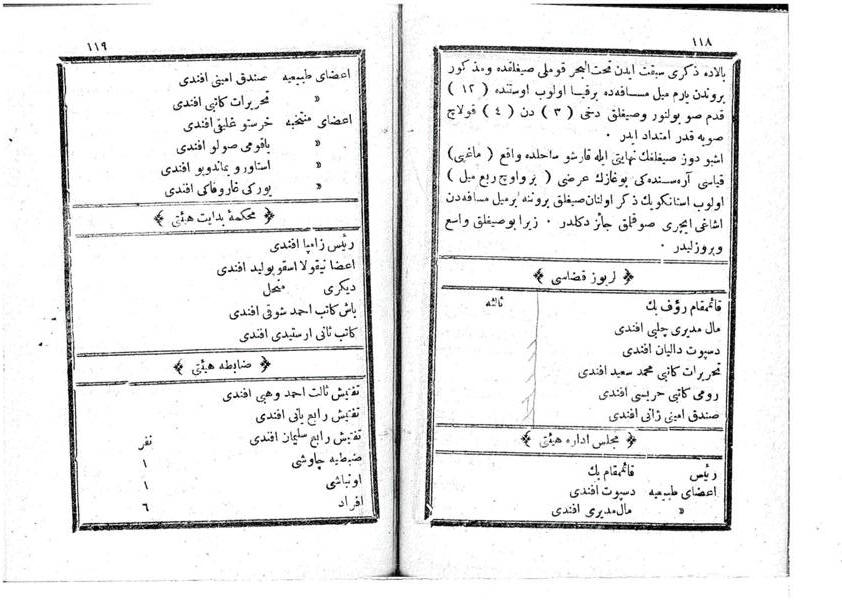 ١١٨
بالاده ذکری سبقت ایدن تحت البحر قوملی صیغلقده ومذکور
بروندن یارم میل مسافه‌ده برقیا اولوب اوستنده ( ١٢ )
قدم صو بولنور وصیغلق دخی ( ٣ ) دن ( ٤ ) قولاچ
صویه قدر امتداد ایدر .
اشبو دوز صیغلغك نهایتی ایله قارشو ساحلده واقع ( ماغیی )
قیاسی آره‌سنده‌کی بوغازك عرضی ( بر واوچ ربع میل )
اولوب استانکویك ذکر اولنان صیغلق بروننه برمیل مسافه‌دن
اشاغی ایچری صوقلمق جائز دکلدر . زیرا بوصیغلق واسع
وبروزلیدر .
﴿ لربوز قضاسی ﴾
قائمقام رؤف بك ثالثه
مال مدیری چلبی افندی
دسپوت دالیان افندی
تحریرات کاتبی محمد سعید افندی
رومی کاتبی حریسی افندی
صندق امینی ژانی افندی
﴿ مجلس اداره هیئتی ﴾
رئیس قائمقام بك
اعضای طبیعیه دسپوت افندی
» مال مدیری افندی
١١٩
اعضای طبیعیه صندق امینی افندی
» تحریرات کاتبی افندی
اعضای منتخبه خرستو غلیقی افندی
» یاقومی صولو افندی
» استاور ویماندویو افندی
» یورکی غاروفاکی افندی
﴿ محکمهٔ بدایت هیئتی ﴾
رئیس زامپا افندی
اعضا نیقولا اسقوپولید افندی
دیکری منحل
باش کاتب احمد شوقی افندی
کاتب ثانی ارستیدی افندی
﴿ ضابطه هیئتی ﴾
تفتیش ثالث احمد وهبی افندی
تفتیش رابع یانی افندی
تفتیش رابع سلیمان افندی نفر
ضبطیه چاوشی ١
اونباشی ١
افراد ٦